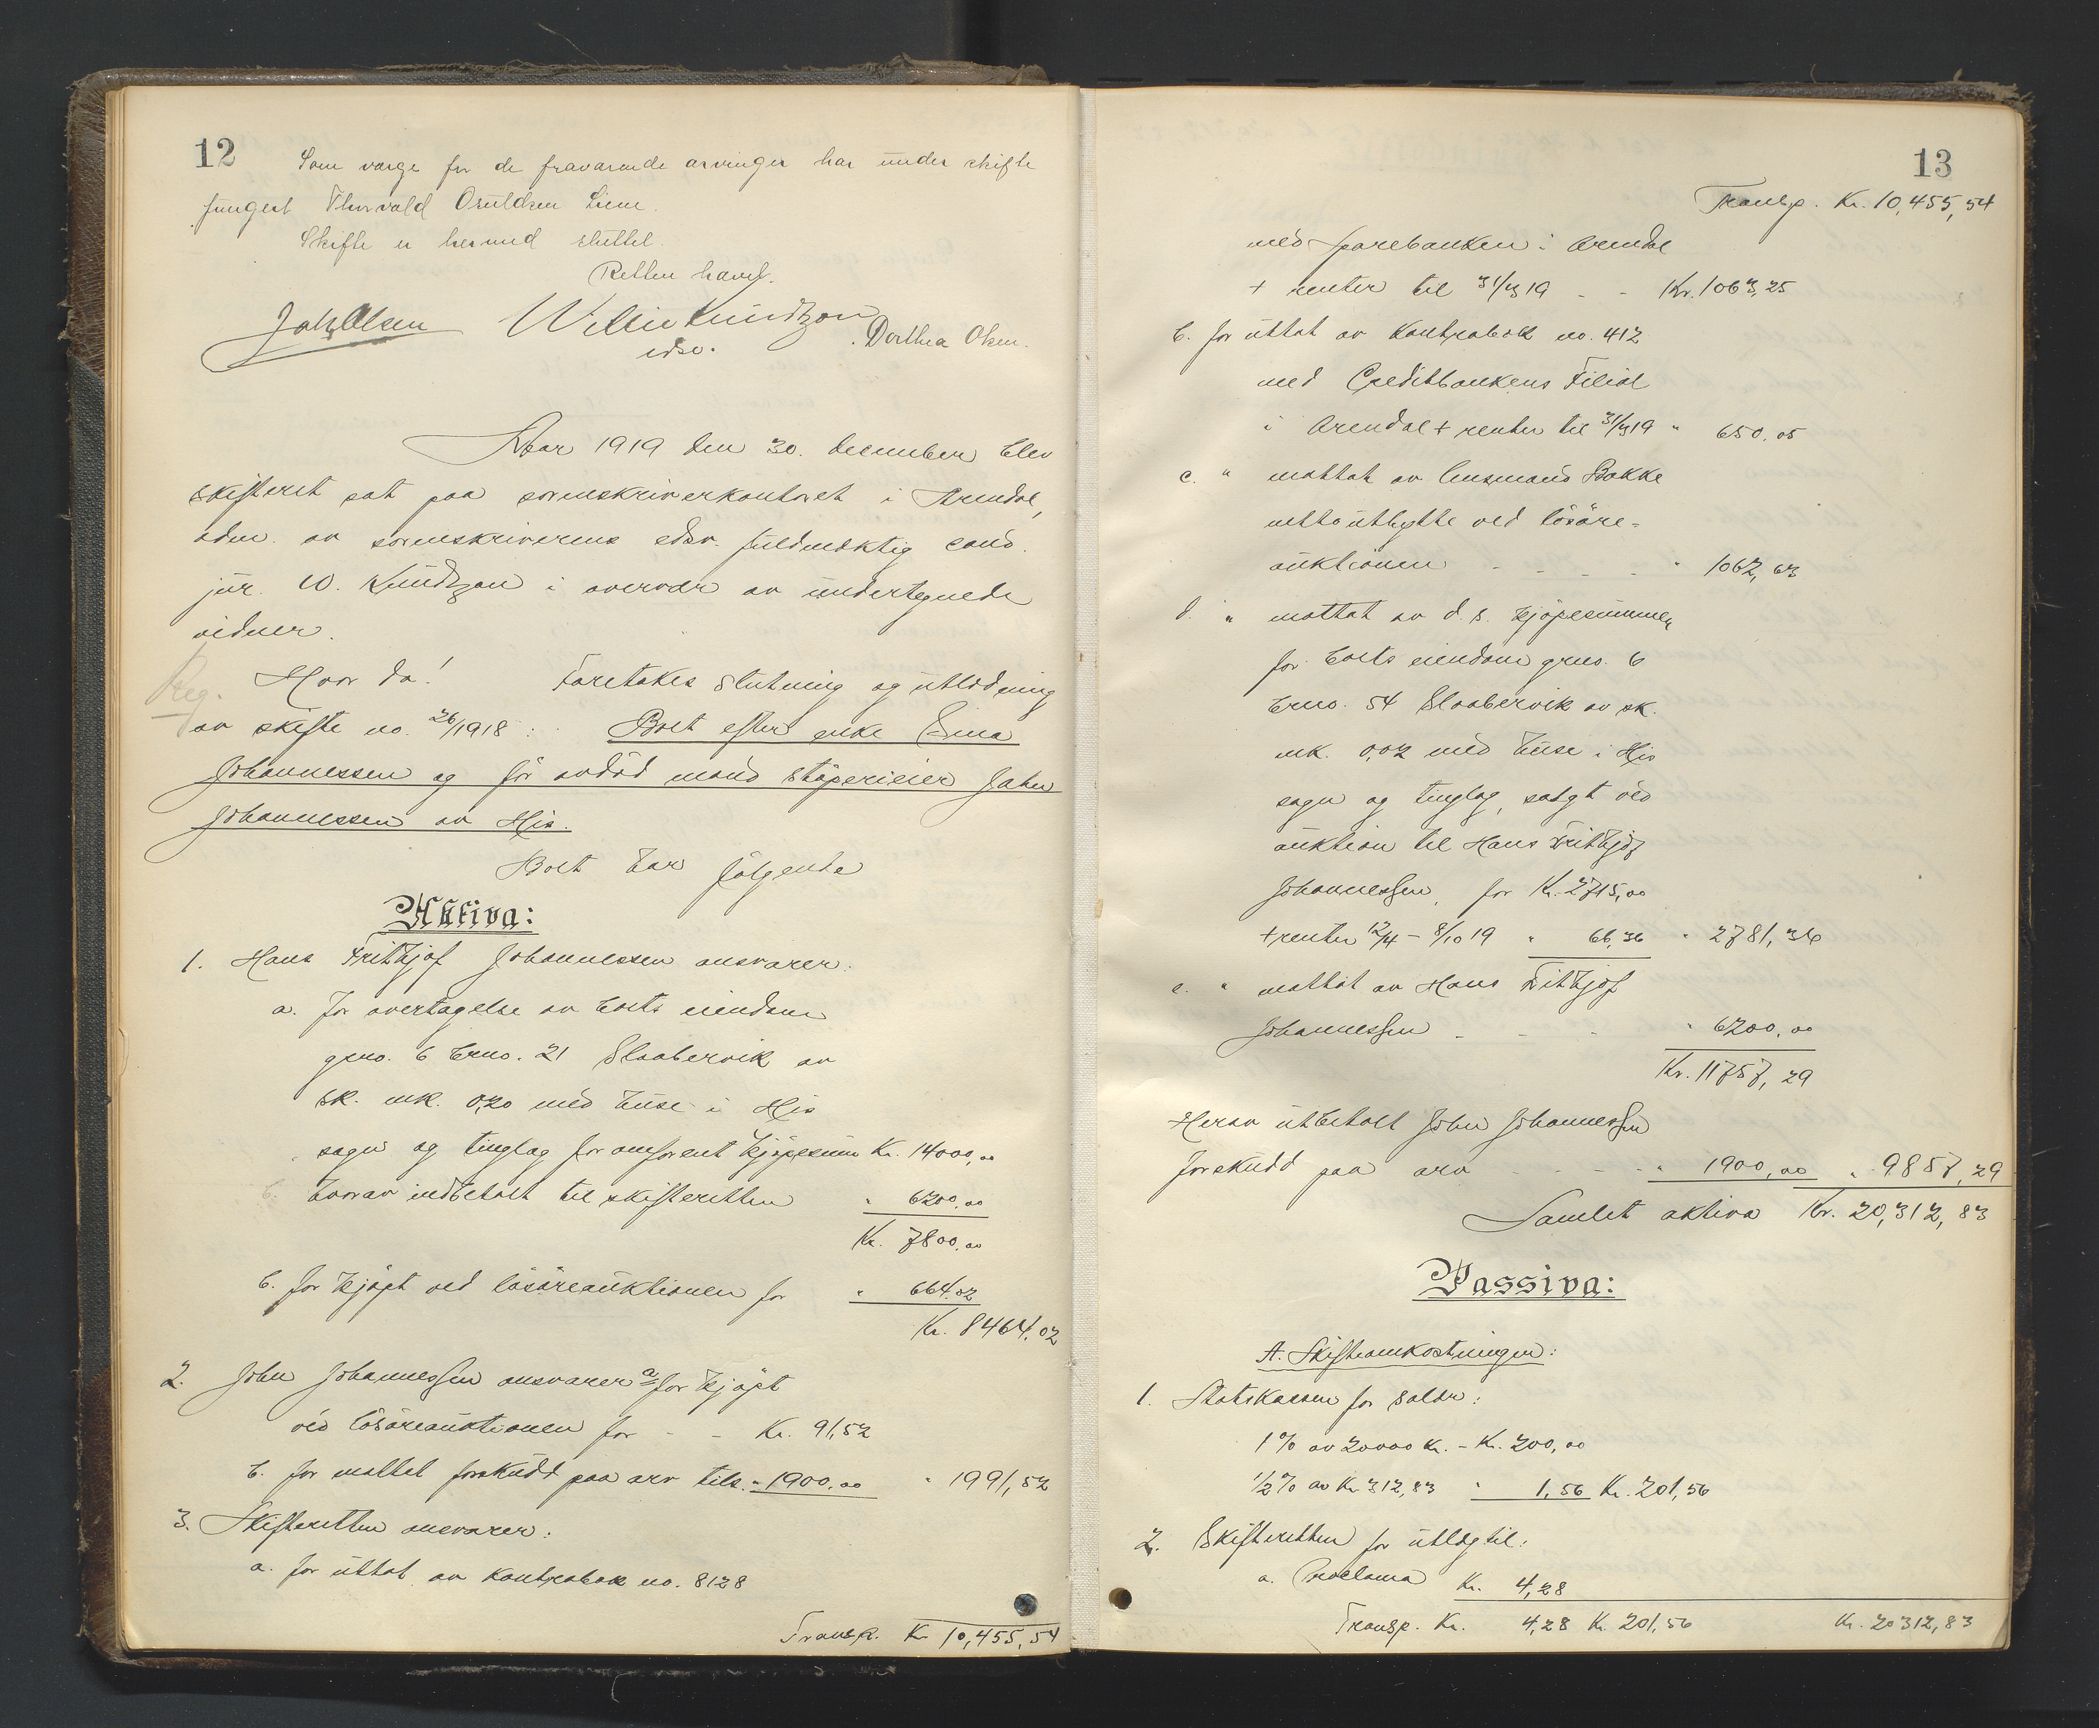 12
Som værge for de fraværende arvinger har under skifte
fungert Thorvald Osuldsen Liene.
Skifte er hermed sluttet.
Retten hævet.
Joh Olsen Willie Knudtzon Dorthea Olsen.
edsv.
Aar 1919 den 30. december blev
skifteret sat paa sorenskriverkontoret i Arendal,
adm. av sorenskriverens edsv. fuldmæktig cand.
jur. W. Knudtzon i overvær av undertegnede
vidner.
Reg. Hvor da! Foretokes slutning og utlodning
av skifte no. 26/1918: Boet efter enke Lina
Johannessen og før avdød mand støperieier John
Johannessen av His.
Boet har følgende
Aktiva:
1. Hans Frithjof Johannessen ansvarer:
a. for overtagelse av boets eiendom
gno. 6 brno. 21 Slaabervik av
sk. mk. 0,20 med huse i His
sogn og tinglag for omforent kjøpesum Kr. 14000,00
hvorav indbetalt til skifteretten " 6200,00
Kr. 7800,00
b. for kjøpt ved løsøreauktionen for " 664.02
Kr. 8464.02
2. John Johannessen ansvarer a/ for kjøpt
ved løsøreauktionen for - - Kr. 91,52
b. for mottat forskudd paa arv tils. " 1900,00 " 1991,52
3. Skifteretten ansvarer:
a. for uttat av kontrabok no. 8128
Transp. Kr 10,455,54
13
Transp. Kr. 10,455,54
med sparebanken i Arendal
+ renter til 31/3 19 - - Kr. 1063,25
b. for uttat av kontrabok no. 412
med Creditbankens Filial
i Arendal + renter til 31/3 19 " 650.05
c. " mottat av lensmand Bakke
netto utbytte ved løsøre-
auktionen - - - - " 1062,63
d. " mottat av d. s. kjøpesummen
for boets eiendom gno. 6
brno. 54 Slaabervik av sk.
mk. 0,02 med huse i His
sogn og tinglag, solgt ved
auktion til Hans Frithjof
Johannessen, for Kr. 2715,00
+ renter 12/4 - 8/10 19 " 66,36 " 2781,36
e. " mottat av Hans Frithjof
Johannessen - - - " 6200,00
Kr. 11757,29
Herav utbetalt John Johannessen
forskudd paa arv - - - - " 1900,00 " 9857,29
Samlet aktiva Kr. 20,312,83
Passiva:
A. Skifteomkostninger:
1. Statskassen for salær:
1% av 20000 Kr. - Kr. 200,00
1/2% av Kr 312,83 " 1,56 Kr. 201,56
2. Skifteretten for utlæg til:
a. Proclama Kr. 4,28
Transp. Kr. 4,28 Kr. 201,56 Kr. 20312,83